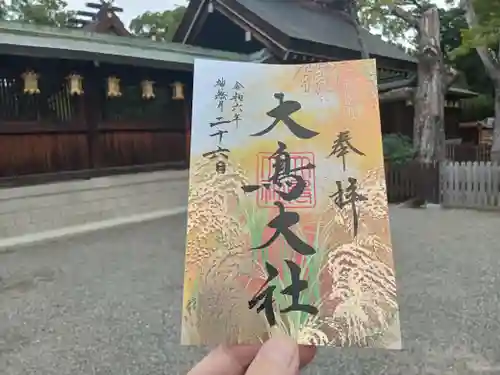 奉拝
大鳥大社
令和六年
神無月
二十六日